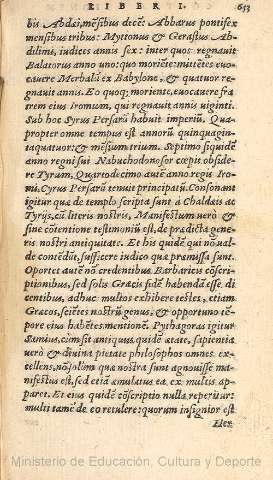 LIBER I. 653
bis Abdei, mẽsibus decẽ: Abbarus pontifex
mensibus tribus: Myttonus & Gerastus Ab-
dilimi, iudices annis sex: inter quos regnauit
Balatorus anno uno: quo moriẽte: mittẽtes euo-
cauere Merbalũ ex Babylone, & quatuor re-
gnauit annis. Eo quoq; moriente, euocauere fra
trem eius Iromum, qui regnauit annis uiginti.
Sub hoc Syrus Persarũ habuit imperiũ. Qua-
propter omne tempus est annorũ quinquagin-
taquatuor: & mensium trium. Septimo siquidẽ
anno regni sui Nabuchodonosor cœpit obside-
re Tyrum, Quartodecimo autẽ anno regis Iro-
mi, Cyrus Persarũ tenuit principatũ. Consonant
igitur quæ de templo scripta sunt à Chaldæis ac
Tyrijs, cũ literis nostris, Manifestum uerò &
sine cõtentione testimoniũ est, de prædicta gene-
ris nostri antiquitate. Et his quidẽ qui nõ ual-
de contẽdũt, sufficere iudico quæ præmissa sunt.
Oportet autẽ nõ credentibus Barbaricis cõscri-
ptionibus, sed solis Græcis fidẽ habendã esse di
centibus, adhuc multos exhibere testes, etiam
Græcos, sciẽtes nostrũ genus, & opportuno tẽ-
pore eius habẽtes mentionẽ. Pythagoras igitur
Samius, cùm sit antiquus quidẽ ætate, sapientia
uerò & diuina pietate philosophos omnes ex-
cellens, nõ solùm quæ nostra sunt agnouisse ma
nifestus est, sed etiã æmulatus ea ex multis ap-
paret. Et eius quidẽ cõscriptio nulla reperitur:
multi tamẽ de eo retulere: quorum insignior est
Ministerio de Educación, Cultura y Deporte